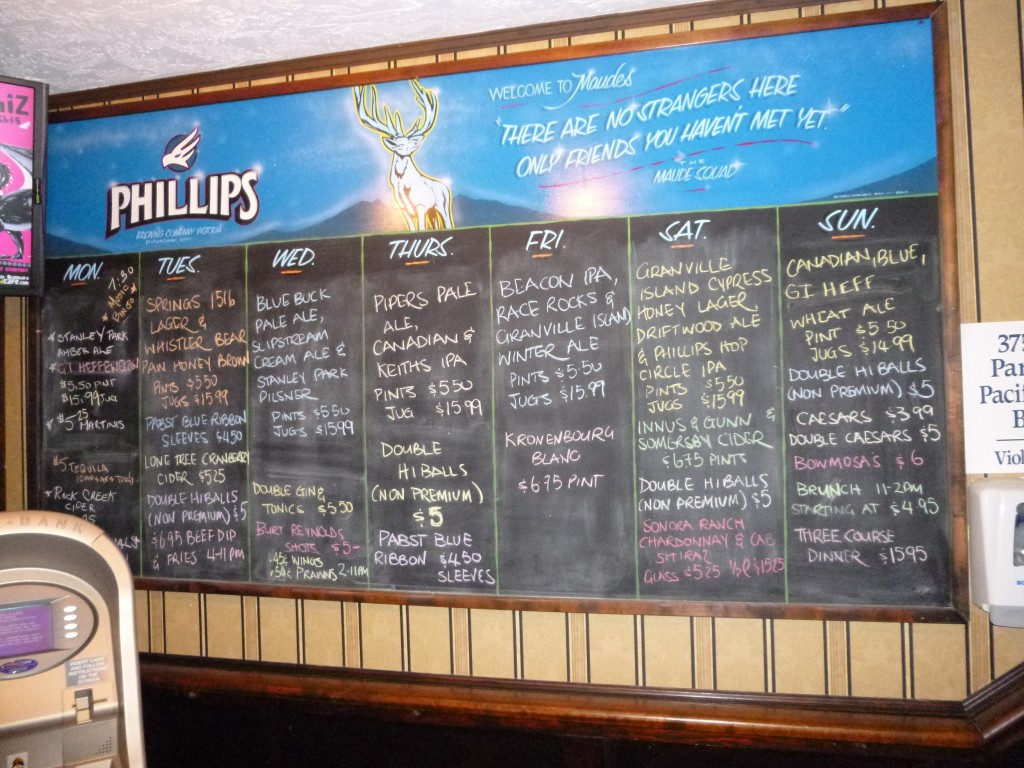 WELCOME TO Maudes
"THERE ARE NO STRANGERS HERE
ONLY FRIENDS YOU HAVEN'T MET YET."
THE
MAUDE SQUAD
PHILLIPS
BREWING COMPANY VICTORIA
MON.
1:30
MUSIC
BINGO
STANLEY PARK
AMBER ALE
GI HEFFEWEIZEN
$5.50 PINT
$15.99 JUG
MARTINIS
$5 TEQUILA
ROCK CREEK
CIDER
TUES.
SPRINGS 1516
LAGER &
WHISTLER BEAR
PAW HONEY BROWN
PINTS $5.50
JUGS $15.99
PABST BLUE RIBBON
SLEEVES $4.50
LONE TREE CRANBERRY
CIDER $5.25
DOUBLE HIBALLS
(NON PREMIUM) $5
$6.95 BEEF DIP
& FRIES 4-11PM
WED.
BLUE BUCK
PALE ALE,
SLIPSTREAM
CREAM ALE &
STANLEY PARK
PILSNER
PINTS $5.50
JUGS $15.99
DOUBLE GIN &
TONICS $5.50
BURT REYNOLDS
SHOTS $5-
.45¢ WINGS
.50¢ PRAWNS 2-11PM
THURS.
PIPERS PALE
ALE,
CANADIAN &
KEITHS IPA
PINTS $5.50
JUG $15.99
DOUBLE
HI BALLS
(NON PREMIUM)
$5
PABST BLUE
RIBBON $4.50
SLEEVES
FRI.
BEACON IPA,
RACE ROCKS &
GRANVILLE ISLAND
WINTER ALE
PINTS $5.50
JUGS $15.99
KRONENBOURG
BLANC
$6.75 PINT
SAT.
GRANVILLE
ISLAND CYPRESS
HONEY LAGER
DRIFTWOOD ALE
& PHILLIPS HOP
CIRCLE IPA
PINTS $5.50
JUGS $15.99
INNUS & GUNN &
SOMERSBY CIDER
$6.75 PINTS
DOUBLE HIBALLS
(NON PREMIUM) $5
SONORA RANCH
CHARDONNAY & CAB
SHIRAZ
GLASS $5.25 ½L $15.25
SUN.
CANADIAN, BLUE,
GI HEFF
WHEAT ALE
PINT $5.50
JUGS $14.99
DOUBLE HI BALLS
(NON PREMIUM) $5
CAESARS $3.99
DOUBLE CAESARS $5
BOWMOSA'S $6
BRUNCH 11-2PM
STARTING AT $4.95
THREE COURSE
DINNER $15.95
375
Par
Pacif
B
Viol
BANK